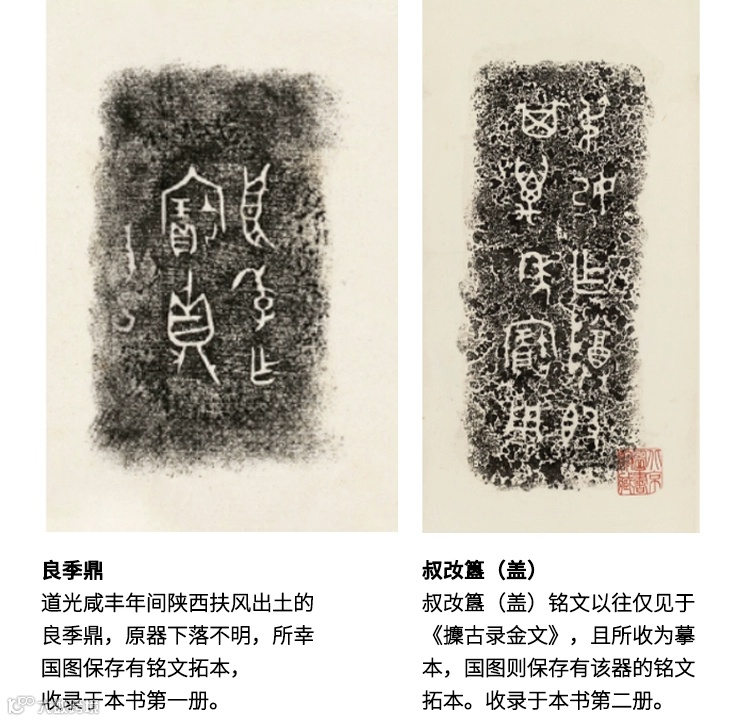 良季乍
寶貞
良季鼎
道光咸丰年间陕西扶风出土的
良季鼎，原器下落不明，所幸
国图保存有铭文拓本，
收录于本书第一册。
叔改簋（盖）
叔改簋（盖）铭文以往仅见于
《攈古录金文》，且所收为摹
本，国图则保存有该器的铭文
拓本。收录于本书第二册。